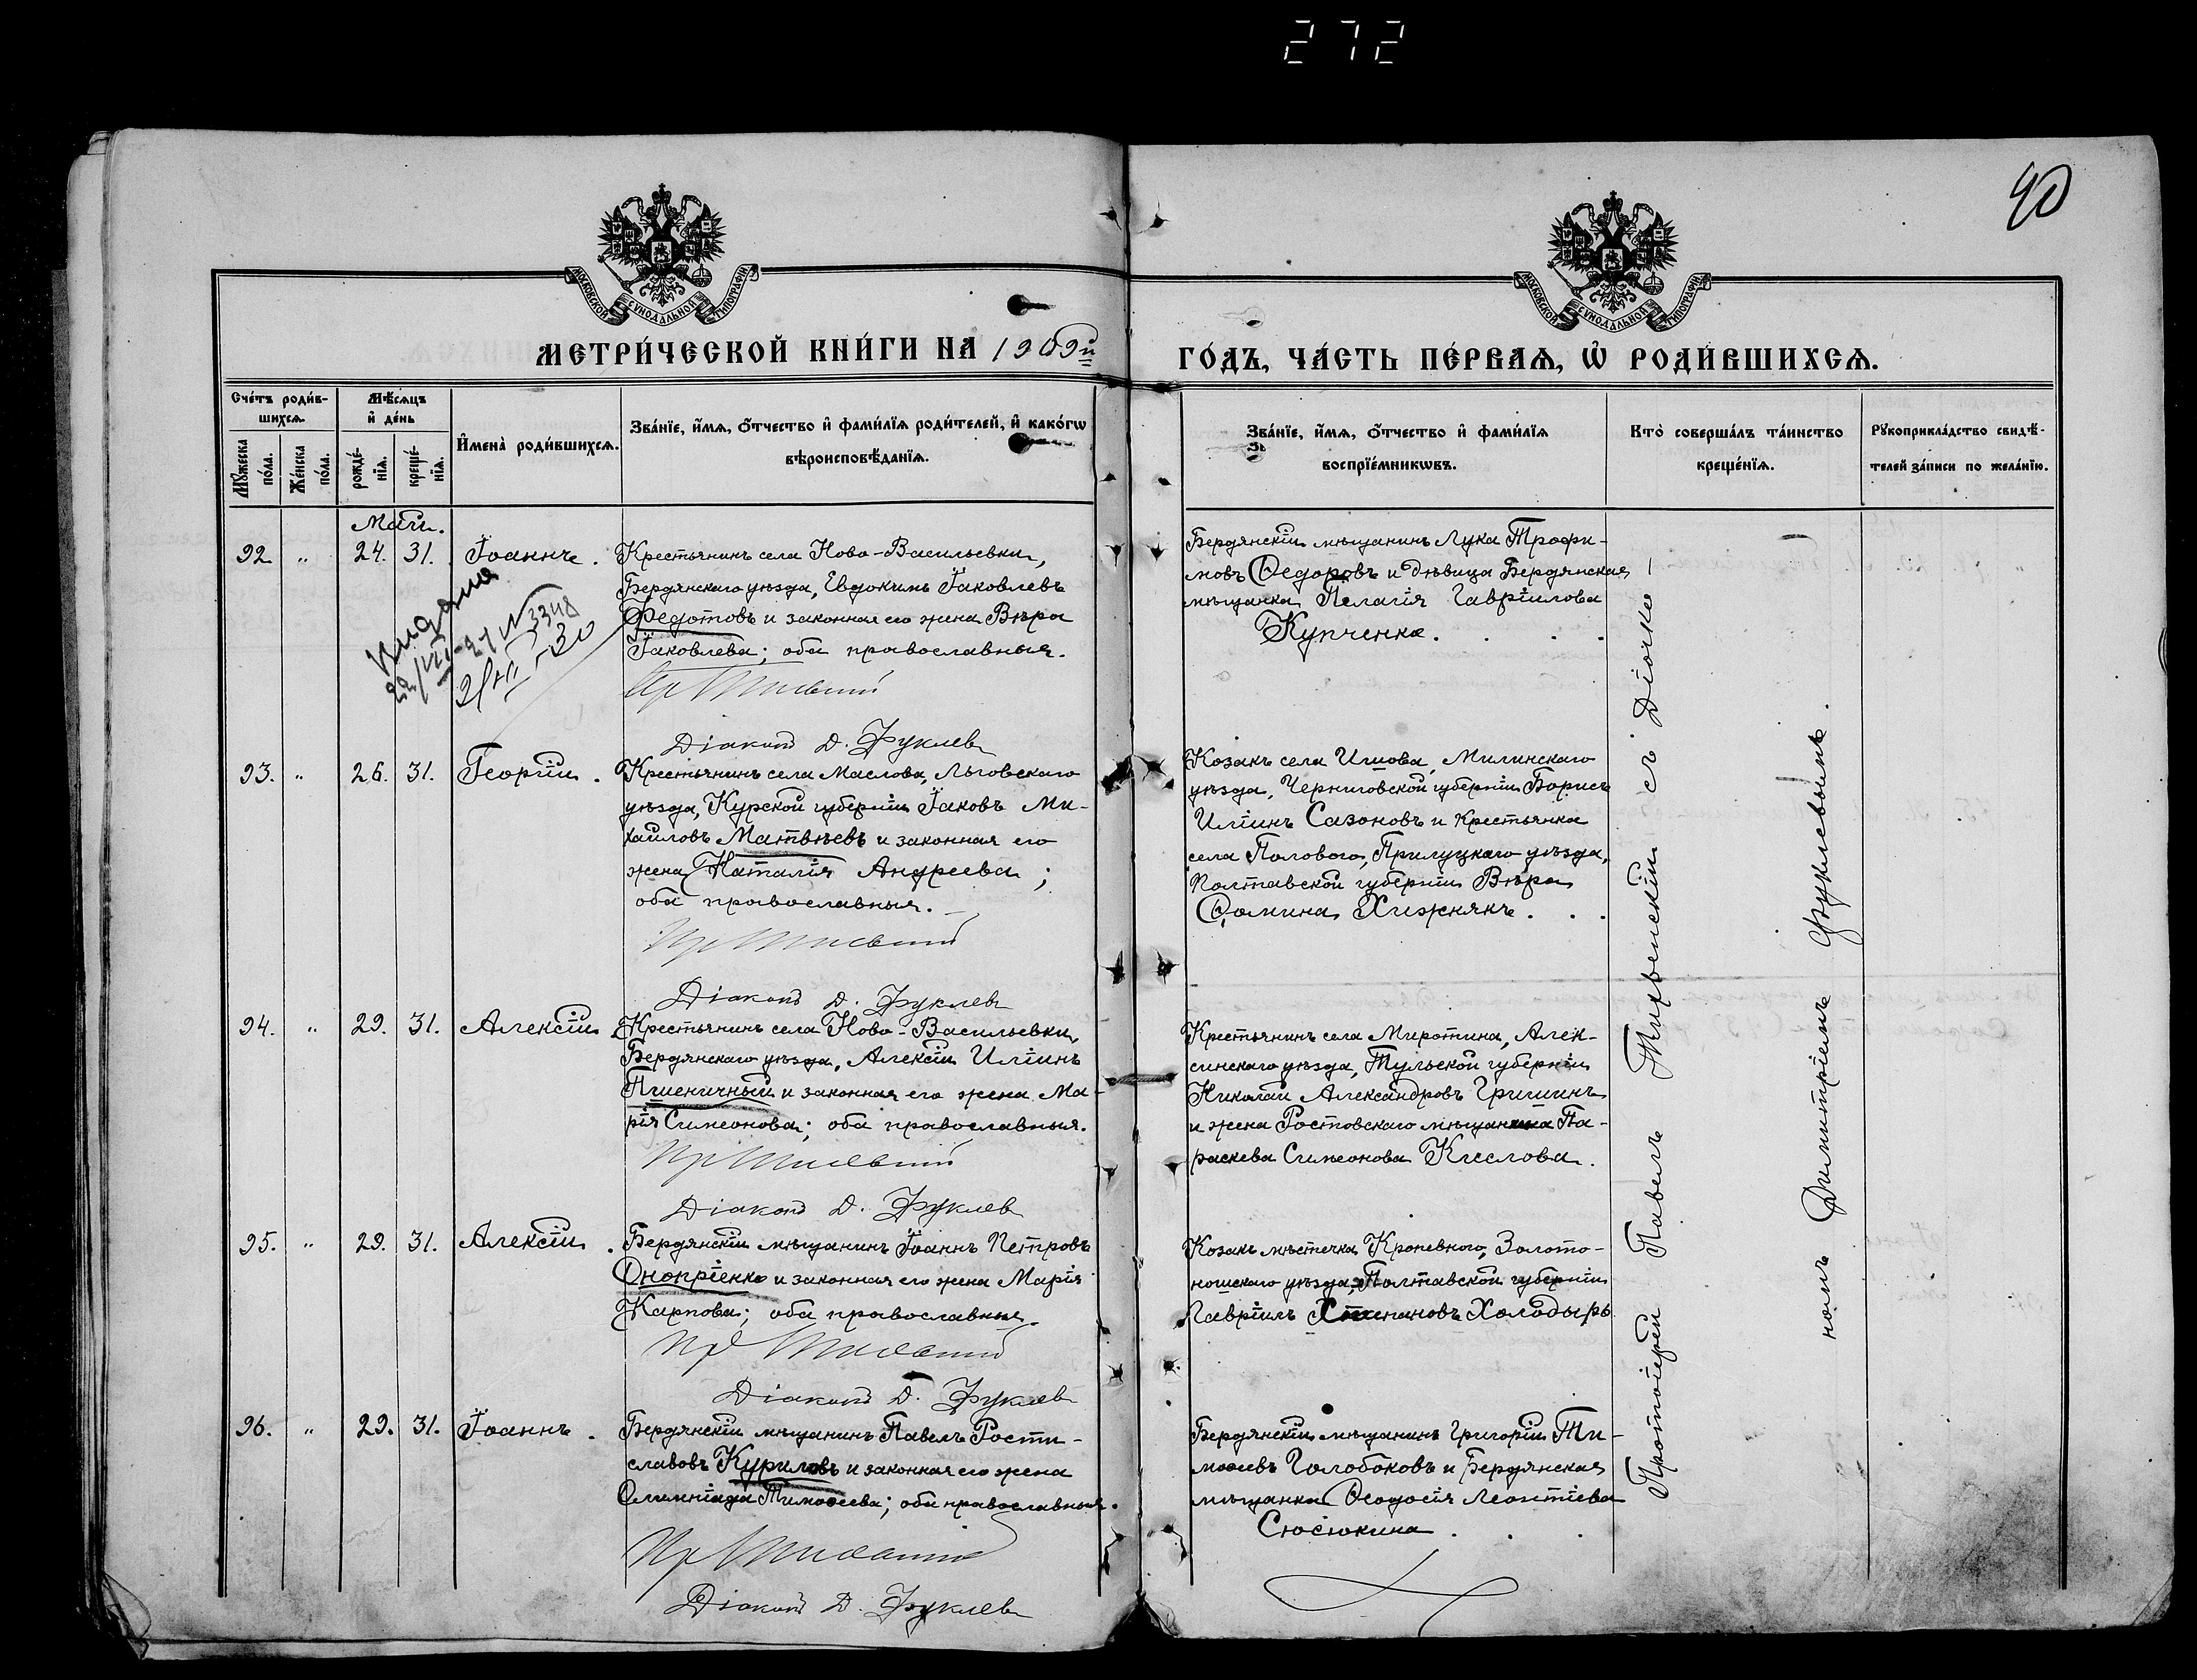 272
40
МОСКОВСКОЙ СѴНОДАЛЬНОЙ ТИПОГРАФІИ
МОСКОВСКОЙ СѴНОДАЛЬНОЙ ТИПОГРАФІИ
МЕТРИ́ЧЕСКОЙ КНИ́ГИ НА 1909й
ГО́ДЪ, ЧА́СТЬ ПЕ́РВАѦ, Ѡ҆ РОДИ́ВШИХСѦ.
Сче́тъ роди́в-
шихсѧ.
Мꙋ́жеска по́ла.
Же́нска по́ла.
Мѣ́сѧцъ
и҆ де́нь
рожде́-
нїѧ.
креще́-
нїѧ.
И҆мена̀ роди́вшихсѧ.
Зва́нїе, и҆́мѧ, ѻ҆́тчество и҆ фами́лїѧ роди́телей, и҆ како́гѡ
вѣроисповѣ́данїѧ.
Зва́нїе, и҆́мѧ, ѻ҆́тчество и҆ фами́лїѧ
воспрїе́мникѡвъ.
Кто̀ соверша́лъ та́инство
креще́нїѧ.
Рꙋкоприкла́дство свидѣ́-
телей за́писи по жела́нїю.
Май.
92. " 24. 31. Іоаннъ.
Крестьянинъ села Ново-Васильевки,
Бердянскаго уѣзда, Евдокимъ Іаковлевъ
Федотовъ и законная его жена Вѣра
Іаковлева; оба православныя.
Діаконъ Д. Фуклевъ
Бердянскій мѣщанинъ Лука Трофи-
мовъ Ѳедоровъ и дѣвица Бердянская
мѣщанка Пелагія Гавріилова
Купченко.
Выдана
22/VII-27 N 3348
2/XII-30
93. " 26. 31. Георгій.
Крестьянинъ села Маслова, Льговскаго
уѣзда, Курской губерніи Іаковъ Ми-
хайловъ Матвѣевъ и законная его
жена Наталія Андреева;
оба православныя.
Діаконъ Д. Фуклевъ
Козакъ села Ишова, Милинскаго
уѣзда, Черниговской губерніи Борисъ
Иліинъ Сазоновъ и крестьянка
села Полового, Прилуцкаго уѣзда,
Полтавской губерніи Вѣра
Ѳомина Хижнякъ.
94. " 29. 31. Алексій
Крестьянинъ села Ново-Васильевки,
Бердянскаго уѣзда, Алексій Иліинъ
Пшеничный и законная его жена Ма-
рія Симеонова; оба православныя.
Діаконъ Д. Фуклевъ
Крестьянинъ села Миротина, Алек-
синскаго уѣзда, Тульской губерніи
Николай Александровъ Гришинъ
и жена Ростовскаго мѣщанина Па-
раскева Симеонова Кислова.
95. " 29. 31. Алексій.
Бердянскій мѣщанинъ Іоаннъ Петровъ
Онопріенко и законная его жена Марія
Карпова; оба православныя.
Діаконъ Д. Фуклевъ
Козакъ мѣстечка Кропевного, Золото-
ношскаго уѣзда, Полтавской губерніи
Гавріилъ Степановъ Холодырь
96. " 29. 31. Іоаннъ.
Бердянскій мѣщанинъ Павелъ Рости-
славовъ Куриловъ и законная его жена
Олимпіада Тимоѳеева; оба православныя.
Діаконъ Д. Фуклевъ
Бердянскій мѣщанинъ Григорій Ти-
моѳеевъ Голобоковъ и Бердянская
мѣщанка Ѳеодосія Леонтіева
Сюсюкина.
Протоіерей Павелъ съ Діако-
номъ Димитріемъ Фуклевымъ.